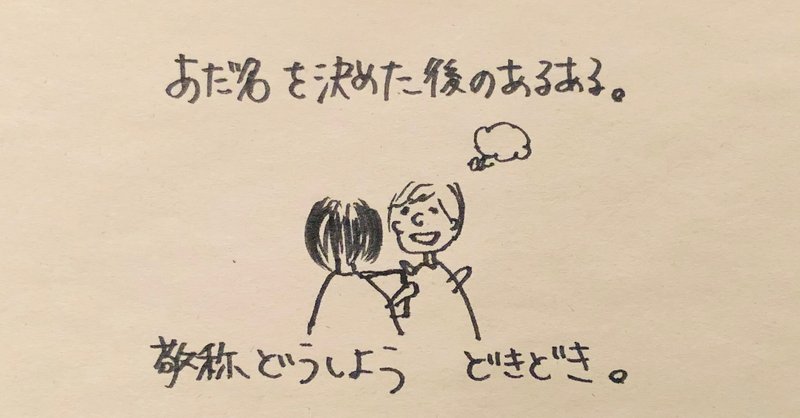 あだ名を決めた後のあるある。
敬称、どうしよう どきどき。